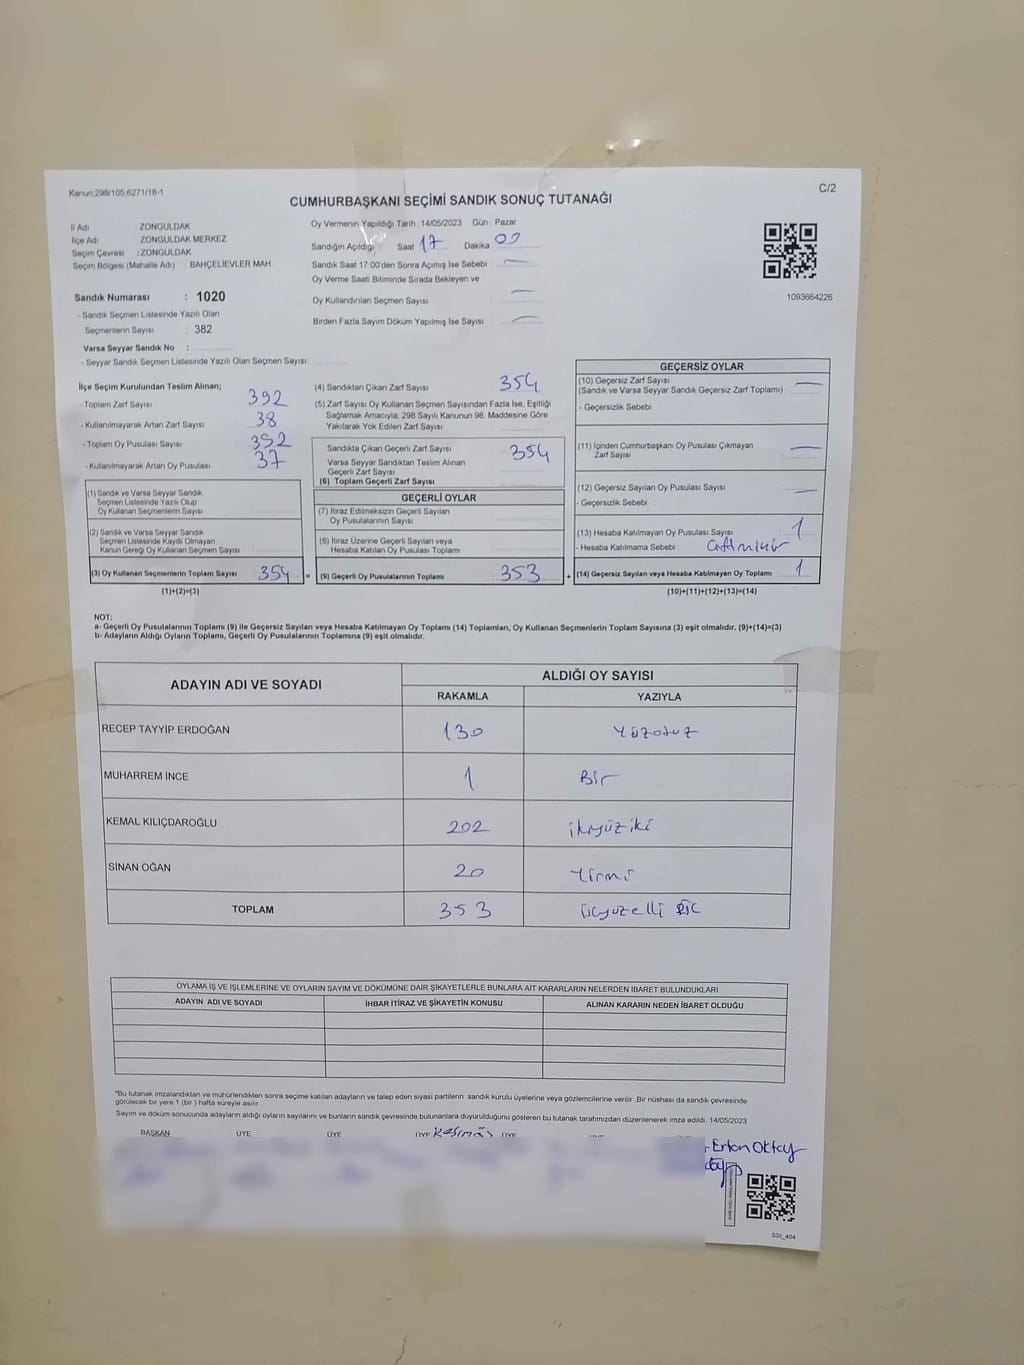 Kanun:298/105,6271/18-1
C/2
CUMHURBAŞKANI SEÇİMİ SANDIK SONUÇ TUTANAĞI
İl Adı ZONGULDAK
İlçe Adı ZONGULDAK MERKEZ
Seçim Çevresi :ZONGULDAK
Seçim Bölgesi (Mahalle Adı) : BAHÇELİEVLER MAH
Sandık Numarası : 1020
- Sandık Seçmen Listesinde Yazılı Olan
Seçmenlerin Sayısı : 382
Varsa Seyyar Sandık No :
- Seyyar Sandık Seçmen Listesinde Yazılı Olan Seçmen Sayısı:
Oy Vermenin Yapıldığı Tarih :14/05/2023 Gün : Pazar
Sandığın Açıldığı Saat 17 Dakika 00
Sandık Saat 17:00'den Sonra Açımış İse Sebebi
Oy Verme Saati Bitiminde Sırada Bekleyen ve
Oy Kullandırılan Seçmen Sayısı
Birden Fazla Sayım Döküm Yapılmış İse Sayısı
1093664226
İlçe Seçim Kurulundan Teslim Alınan;
- Toplam Zarf Sayısı 392
- Kullanılmayarak Artan Zarf Sayısı 38
- Toplam Oy Pusulası Sayısı 392
- Kullanılmayarak Artan Oy Pusulası 37
(1) Sandık ve Varsa Seyyar Sandık
Seçmen Listesinde Yazılı Olup
Oy Kullanan Seçmenlerin Sayısı
(2) Sandık ve Varsa Seyyar Sandık
Seçmen Listesinde Kayıtlı Olmayan
Kanun Gereği Oy Kullanan Seçmen Sayısı
(3) Oy Kullanan Seçmenlerin Toplam Sayısı 354
(1)+(2)=(3)
(4) Sandıktan Çıkan Zarf Sayısı 354
(5) Zarf Sayısı Oy Kullanan Seçmen Sayısından Fazla İse, Eşitliği
Sağlamak Amacıyla; 298 Sayılı Kanunun 98. Maddesine Göre
Yakılarak Yok Edilen Zarf Sayısı
Sandıkta Çıkan Geçerli Zarf Sayısı 354
Varsa Seyyar Sandıktan Teslim Alınan
Geçerli Zarf Sayısı
(6) Toplam Geçerli Zarf Sayısı
GEÇERLİ OYLAR
(7) İtiraz Edilmeksizin Geçerli Sayılan
Oy Pusulalarının Sayısı
(8) İtiraz Üzerine Geçerli Sayılan veya
Hesaba Katılan Oy Pusulası Toplamı
= (9) Geçerli Oy Pusulalarının Toplamı 353 +
GEÇERSİZ OYLAR
(10) Geçersiz Zarf Sayısı
(Sandık ve Varsa Seyyar Sandık Geçersiz Zarf Toplamı) :
- Geçersizlik Sebebi
(11) İçinden Cumhurbaşkanı Oy Pusulası Çıkmayan
Zarf Sayısı
(12) Geçersiz Sayılan Oy Pusulası Sayısı
- Geçersizlik Sebebi
(13) Hesaba Katılmayan Oy Pusulası Sayısı 1
- Hesaba Katılmama Sebebi
(14) Geçersiz Sayılan veya Hesaba Katılmayan Oy Toplamı 1
(10)+(11)+(12)+(13)=(14)
NOT:
a- Geçerli Oy Pusulalarının Toplamı (9) ile Geçersiz Sayılan veya Hesaba Katılmayan Oy Toplamı (14) Toplamları, Oy Kullanan Seçmenlerin Toplam Sayısına (3) eşit olmalıdır. (9)+(14)=(3)
b- Adayların Aldığı Oyların Toplamı, Geçerli Oy Pusulalarının Toplamına (9) eşit olmalıdır.
ADAYIN ADI VE SOYADI ALDIĞI OY SAYISI
RAKAMLA YAZIYLA
RECEP TAYYİP ERDOĞAN 130 Yüzotuz
MUHARREM İNCE 1 Bir
KEMAL KILIÇDAROĞLU 202 ikiyüziki
SİNAN OĞAN 20 Yirmi
TOPLAM 353 üçyüzelli üç
OYLAMA İŞ VE İŞLEMLERİNE VE OYLARIN SAYIM VE DÖKÜMÜNE DAİR ŞİKAYETLERLE BUNLARA AİT KARARLARIN NELERDEN İBARET BULUNDUKLARI
ADAYIN ADI VE SOYADI İHBAR İTİRAZ VE ŞİKAYETİN KONUSU ALINAN KARARIN NEDEN İBARET OLDUĞU
*Bu tutanak imzalandıktan ve mühürlendikten sonra seçime katılan adayların ve talep eden siyasi partilerin sandık kurulu üyelerine veya gözlemcilerine verilir. Bir nüshası da sandık çevresinde
görülecek bir yere 1 (bir) hafta süreyle asılır.
Sayım ve döküm sonucunda adayların aldığı oyların sayılarını ve bunların sandık çevresinde bulunanlara duyurulduğunu gösteren bu tutanak tarafımızdan düzenlenerek imza edildi. 14/05/2023
BAŞKAN ÜYE ÜYE ÜYE ÜYE
Ertan Oktay
SSI_404